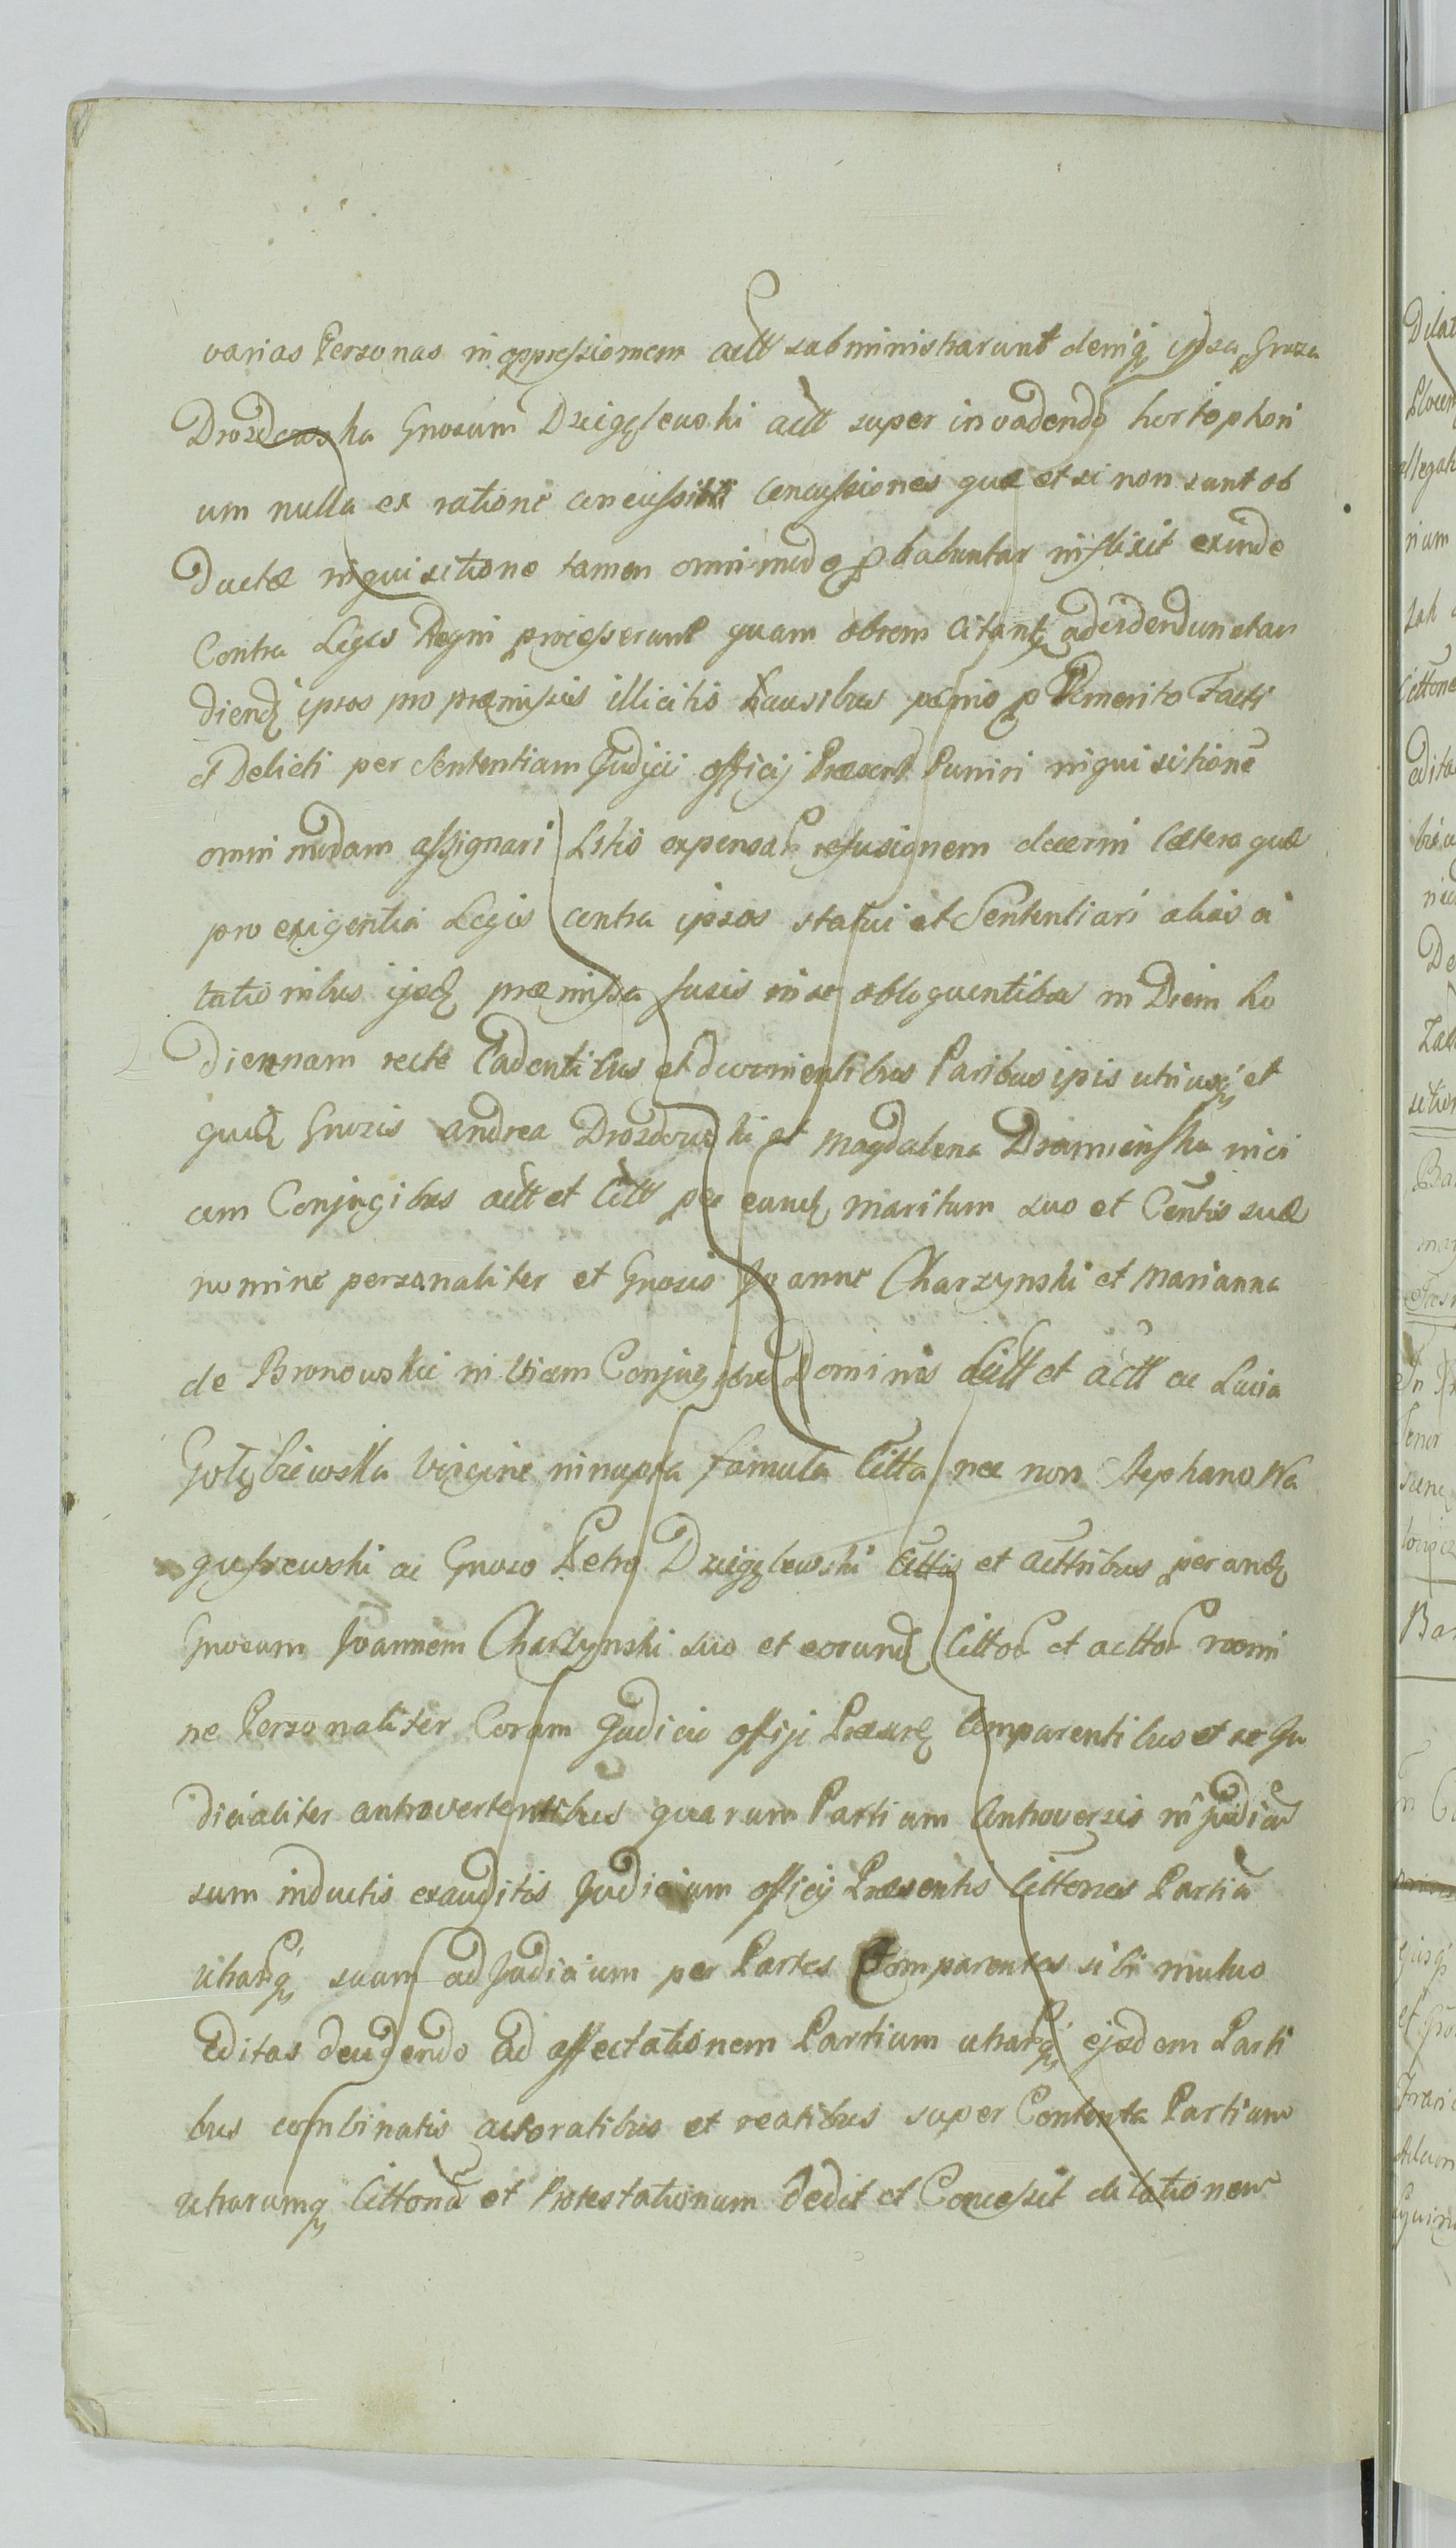 varias Personas in oppressionem actt subministrarunt deniq ipsa Gnosa
Drozdowska Gnosum Dzięglewski actt super invadendo hortophori
um nulla ex ratione concussit concussiones quæ et si non sunt ob
ductæ inquisitione tamen omnimode probabuntur inflixit exinde
Contra Leges Regni processerunt quam obrem citantq ad videndum et au
diendq ipsos pro præmissis illicitis ausibus pænis p Demerito Facti
et Delicti per Sententiam Judicii officij Præsent Puniri inquisitione
omnimodam assignari Litis expensar refusionem decerni Cætera quæ
pro exigentia Legis contra ipsos statui et Sententiari aliis ci
tationibus ijsdq præmissa fusis in se obloquentibus in Diem ho
diernam recte Cadentibus et devenientibus Partibus ipsis utriusq et
quidq Gnosis Andrea Drozdowski et Magdalena Dramińska inici
cem Conjugibus actt et Citt per eundq maritum suo et Contis suæ
nomine personaliter et Gnosis Joanne Charzynski et Marianna
de Bronowskie in vicem Conjugibus Dominis Citt et actt ac Lucia
Gołębiewska Virgine innupta famula Citta nec non Stephano Wa
guszewski ac Gnoso Petro Dzięglewski Cittis et acttribus per eundq
Gnosum Joannem Charzynski suo et eorundq Cittor et acttor nomi
ne Personaliter Coram Judicio offiji Præsente Comparentibus et se Ju
dicialiter controvertentibus quarum Partium Controversis in judicia
sum inductis exauditis Judicium officij Præsentis Cittones Partiũ
utrarq suam ad Judicium per Partes Comparentes sibi mutuo
Editas decidendo Ad affectationem Partium utrarq ejsdem Parti
bus combinatis actoratibus et reatibus super Contenta Partium
utrarumq Cittonũ et Protestationum Dedit et Concessit dilationem